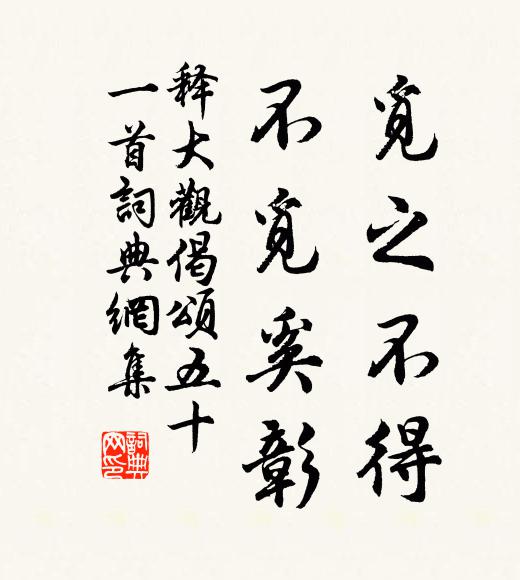 觅之不得
不觅奚彰
释大觀偈頌五十
一首詞典網集
詞典网印